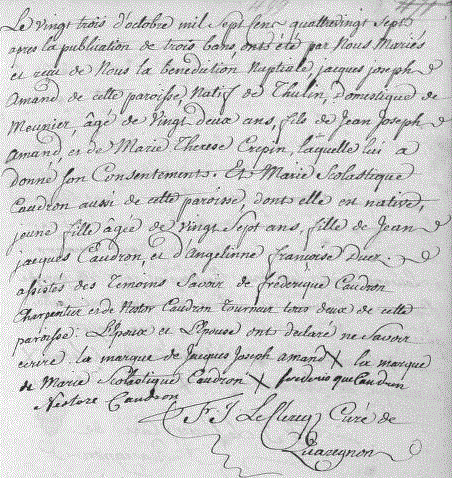 Le vingt trois d'octobre mil sept cent quattrevingt sept
apres la publication de trois bans, ont été par Nous Mariés
et reçu de Nous la benediction Nuptiale, jacques joseph
Amand de cette paroisse, Natif de Thulin, Domestique de
Meunier, âgé de Vingt deux ans, fils de Jean Joseph
Amand, et de Marie Therese Crepin, laquelle lui a
donné son Consentement. Et Marie Scolastique
Caudron aussi de cette paroisse, dont elle est native,
jeune fille âgée de vingt Sept ans, fille de Jean
jacques Caudron, et d'Angelinne françoise Duez.
assistés des Temoins Savoir de fréderique Caudron
Charpentier et de Nestor Caudron Tourneur tous deux de cette
paroisse. L'Epoux et L'Epouse ont declaré ne Savoir
ecrire. la marque de Jacques Joseph amand X la marque
de Marie Scholastique Caudron X frederique Caudron
Nestore Caudron
Fr. J Le Clercq Curé de
Quaregnon